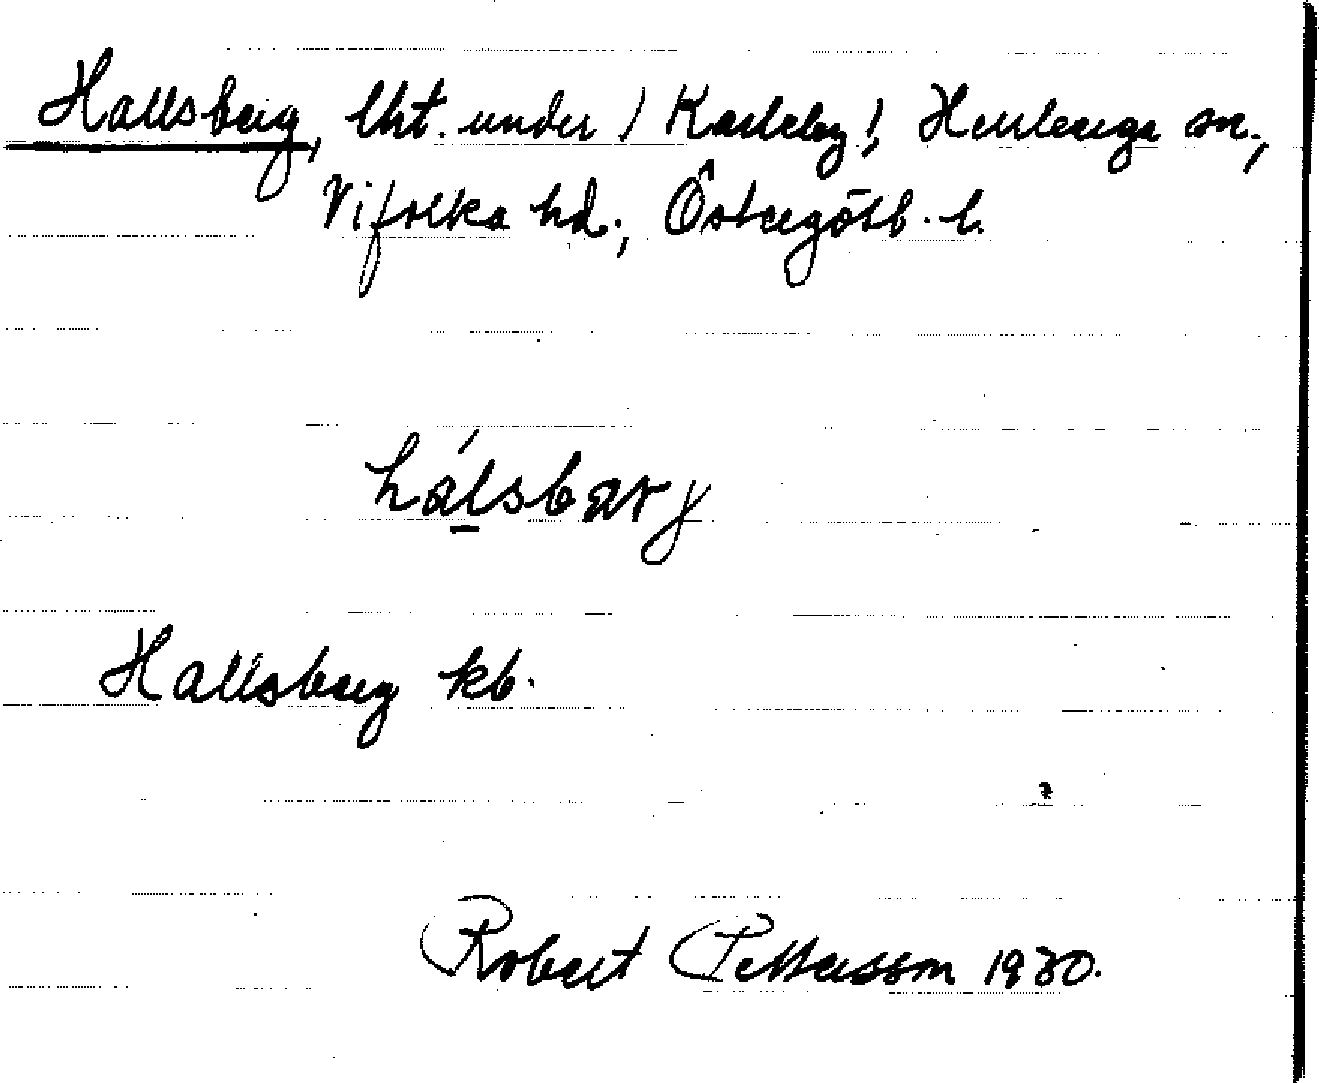 Hallsberg, lht. under ) Karleby !, Herrberga sn.,
Vifolka hd., Östergötl. l.
hálsbærj
Hallsberg kb.
Robert Pettersson 1930.